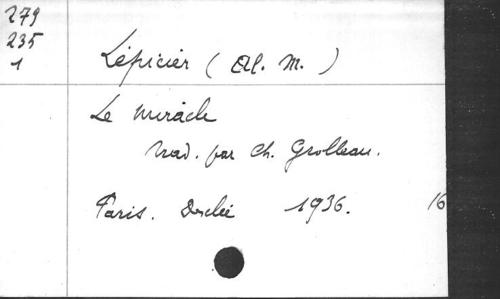 279
235
1
Lépicier (Al. M.)
Le miracle
trad. par Ch. Grolleau.
Paris. Desclée 1936. 16